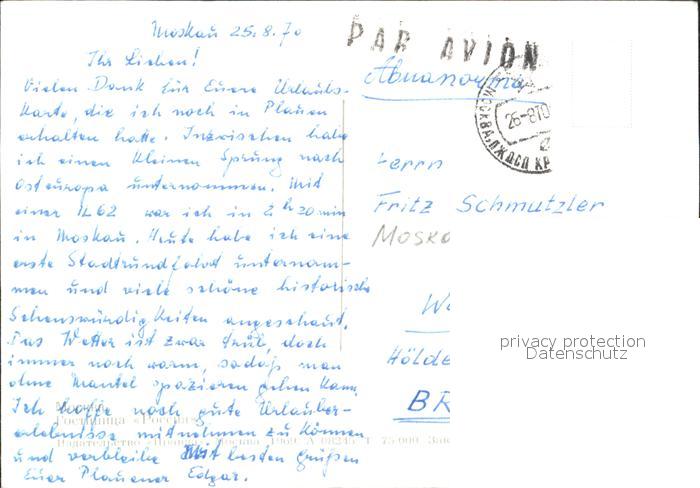 Moskau 25.8.70
Ihr Lieben!
Vielen Dank für Euere Urlaubs-
karte, die ich noch in Plauen
erhalten hatte. Inzwischen habe
ich einen kleinen Sprung nach
Osteuropa unternommen. Mit
einer IL62 war ich in 2h 20min
in Moskau. Heute habe ich eine
erste Stadtrundfahrt unternom-
men und viele schöne historische
Sehenswürdigkeiten angeschaut.
Das Wetter ist zwar trüb, doch
immer noch warm, sodaß man
ohne Mantel spazieren gehen kann.
Ich hoffe noch gute Urlauber-
erlebnisse mitnehmen zu können
und verbleibe Mit besten Grüßen
Euer Plauener Edgar.
Москва
Гостиница «Россия»
Издательство Москва 1969 А 08245 Т 75 000
PAR AVION
МОСКВА
26-870
Herrn
Fritz Schmutzler
Mosko
We
Hölde
BR
privacy protection
Datenschutz